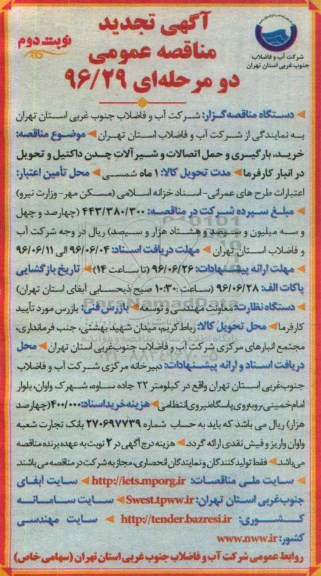 آگهی تجدید
مناقصه عمومی
دو مرحله‌ای ۹۶/۲۹
نوبت دوم
شرکت آب و فاضلاب
جنوب غربی استان تهران
دستگاه مناقصه‌گزار: شرکت آب و فاضلاب جنوب غربی استان تهران
به نمایندگی از شرکت آب و فاضلاب استان تهران موضوع مناقصه:
خرید، بارگیری و حمل اتصالات و شیرآلات چدن داکتیل و تحویل
در انبار کارفرما مدت تحویل کالا: ۱ ماه شمسی محل تأمین اعتبار:
اعتبارات طرح های عمرانی - اسناد خزانه اسلامی (مسکن مهر- وزارت نیرو)
مبلغ سپرده شرکت در مناقصه: ۴۴۳/۳۸۰/۳۰۰ (چهارصد و چهل
و سه میلیون و سیصد و هشتاد هزار و سیصد) ریال در وجه شرکت آب
و فاضلاب استان تهران مهلت دریافت اسناد: ۹۶/۰۶/۰۴ الی ۹۶/۰۶/۱۱
مهلت ارائه پیشنهادات: ۹۶/۰۶/۲۶ (تا ساعت ۱۴) تاریخ بازگشایی
پاکات الف: ۹۶/۰۶/۲۸ (ساعت ۱۰:۳۰ صبح ذیحسابی آبفای استان تهران)
دستگاه نظارت: معاونت مهندسی و توسعه بازرس فنی: بازرس مورد تأیید
کارفرما محل تحویل کالا: رباط کریم، میدان شهید بهشتی، جنب فرمانداری،
مجتمع انبارهای مرکزی شرکت آب و فاضلاب جنوب غربی استان تهران محل
دریافت اسناد و ارائه پیشنهادات: دبیرخانه مرکزی شرکت آب و فاضلاب
جنوب غربی استان تهران واقع در کیلومتر ۲۲ جاده ساوه، شهرک واوان، بلوار
امام خمینی روبروی پاسگاه نیروی انتظامی هزینه خرید اسناد: ۴۰۰/۰۰۰ (چهارصد
هزار) ریال می باشد که باید به حساب شماره ۲۷۰۶۹۷۷۳۹ بانک تجارت شعبه
واوان واریز و فیش نقدی ارائه گردد. هزینه درج آگهی در ۲ نوبت به عهده برنده مناقصه
می‌باشد فقط تولیدکنندگان و نمایندگان انحصاری، مجاز به شرکت در مناقصه می باشند
سایت ملی مناقصات: http://iets.mporg.ir سایت آبفای
جنوب غربی استان تهران: Swest.tpww.ir سایت سامانه
کشوری: http://tender.bazresi.ir سایت مهندسی
کشور: www.nww.ir
روابط عمومی شرکت آب و فاضلاب جنوب غربی استان تهران (سهامی خاص)